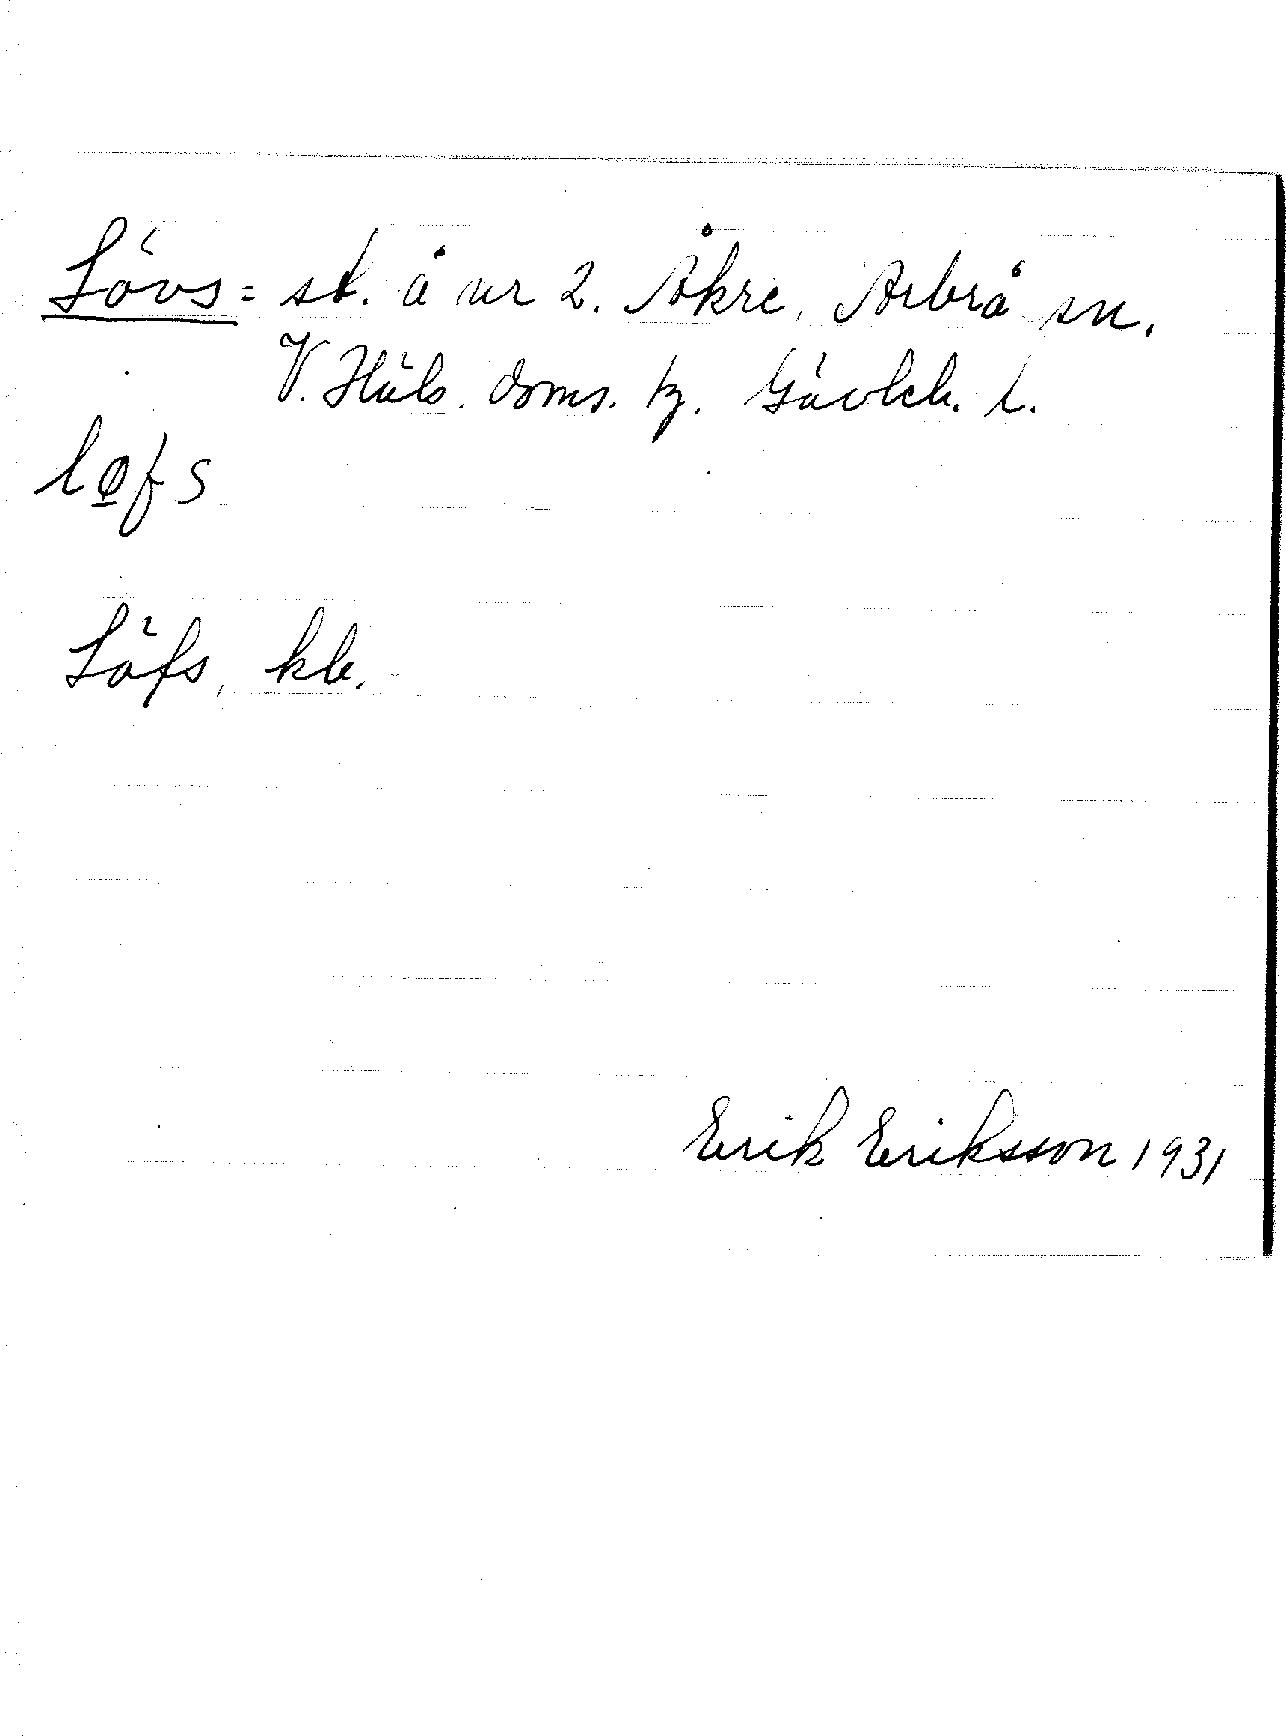 Lövs = st. å nr 2. Åkre, Arbrå sn.
V. Häls. doms. tg. Gävleb. l.
løfs
Löfs, kb.
Erik Eriksson 1931